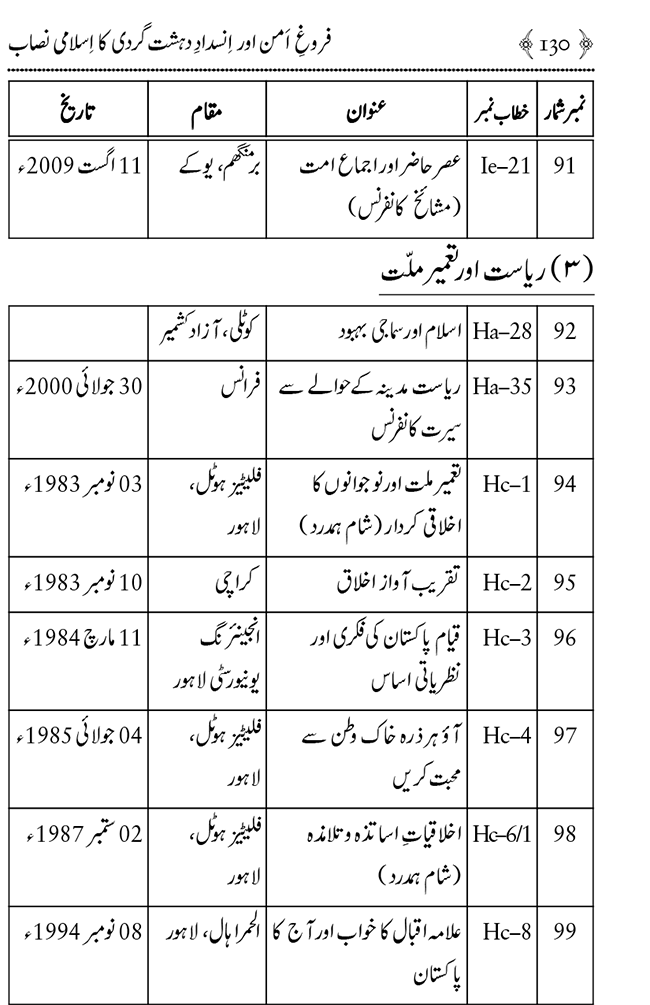 ﴿ 130 ﴾ فروغِ اَمن اور اِنسدادِ دہشت گردی کا اِسلامی نصاب
نمبر شمار خطاب نمبر عنوان مقام تاریخ
91 Ie–21 عصر حاضر اور اجماع امت برمنگھم، یو کے 11 اگست 2009ء
(مشائخ کانفرنس)
(۳) ریاست اور تعمیر ملّت
92 Ha–28 اسلام اور سماجی بہبود کوٹلی، آزاد کشمیر
93 Ha–35 ریاست مدینہ کے حوالے سے فرانس 30 جولائی 2000ء
سیرت کانفرنس
94 Hc–1 تعمیر ملت اور نوجوانوں کا فلیٹیز ہوٹل، 03 نومبر 1983ء
اخلاقی کردار (شام ہمدرد) لاہور
95 Hc–2 تقریب آواز اخلاق کراچی 10 نومبر 1983ء
96 Hc–3 قیام پاکستان کی فکری اور انجینئرنگ 11 مارچ 1984ء
نظریاتی اساس یونیورسٹی لاہور
97 Hc–4 آؤ ہر ذرہ خاک وطن سے فلیٹیز ہوٹل، 04 جولائی 1985ء
محبت کریں لاہور
98 Hc–6/1 اخلاقیاتِ اساتذہ و تلامذہ فلیٹیز ہوٹل، 02 ستمبر 1987ء
(شام ہمدرد) لاہور
99 Hc–8 علامہ اقبال کا خواب اور آج کا الحمرا ہال، لاہور 08 نومبر 1994ء
پاکستان